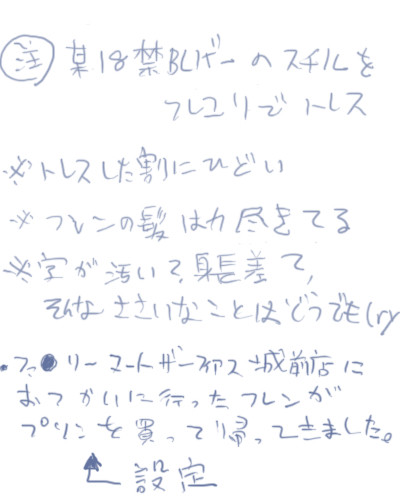 ㊟ 某18禁BLゲーのスチルを
フレユリでトレス
※トレスした割にひどい
※フレンの髪は力尽きてる
※字が汚い?身長差て、
そんなささいなことはどうでも(ry
・ファ●リーマートザーフィアス城前店に
おつかいに行ったフレンが
プリンを買って帰ってきました。
設定